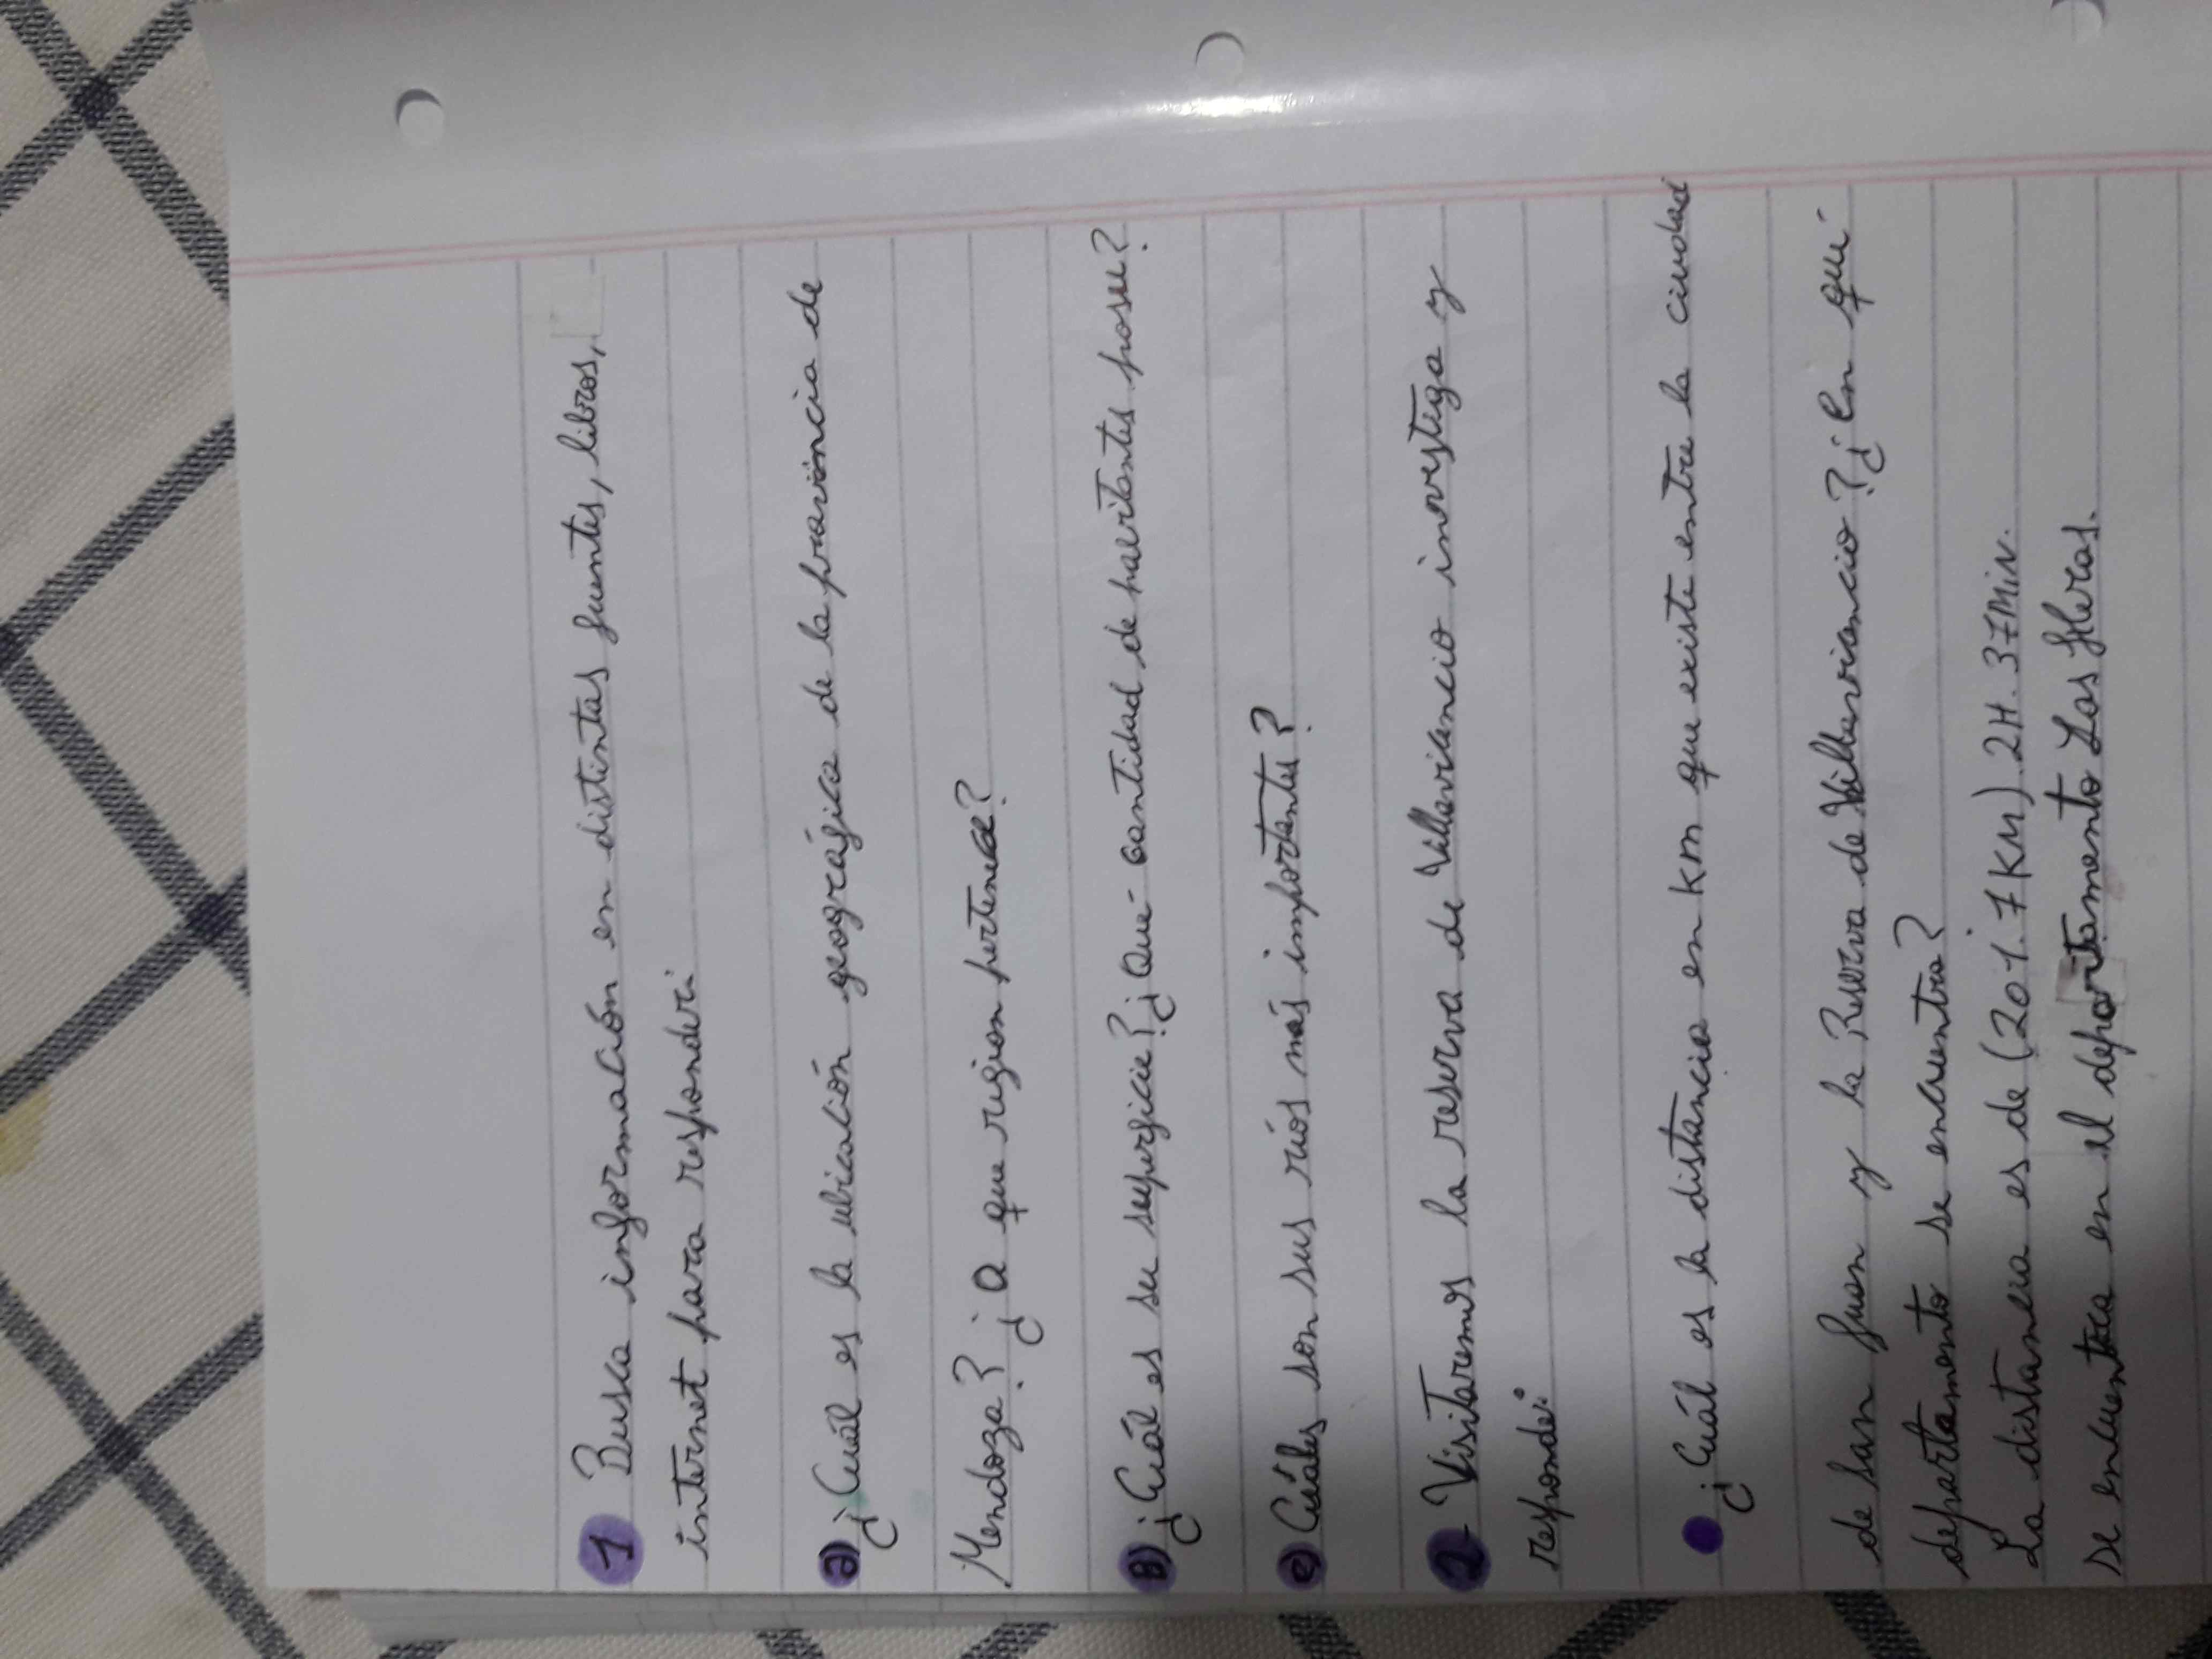 1 Busca información en distintas fuentes, libros,
internet para responder:
a) ¿Cuál es la ubicación geográfica de la provincia de
Mendoza? ¿A que region pertenece?
B) ¿Cuál es su superficie? ¿Qué cantidad de habitantes posee?
c) Cuáles son sus ríos más importantes?
2- Visitaremos la reserva de Villavicencio investiga y
responde:
• ¿Cuál es la distancia en km que existe entre la ciudad
de San Juan y la Reserva de Villavicencio? ¿En qué
departamento se encuentra?
La distancia es de (201.7 KM). 2H. 37MIN.
se encuentra en el departamento Las Heras.